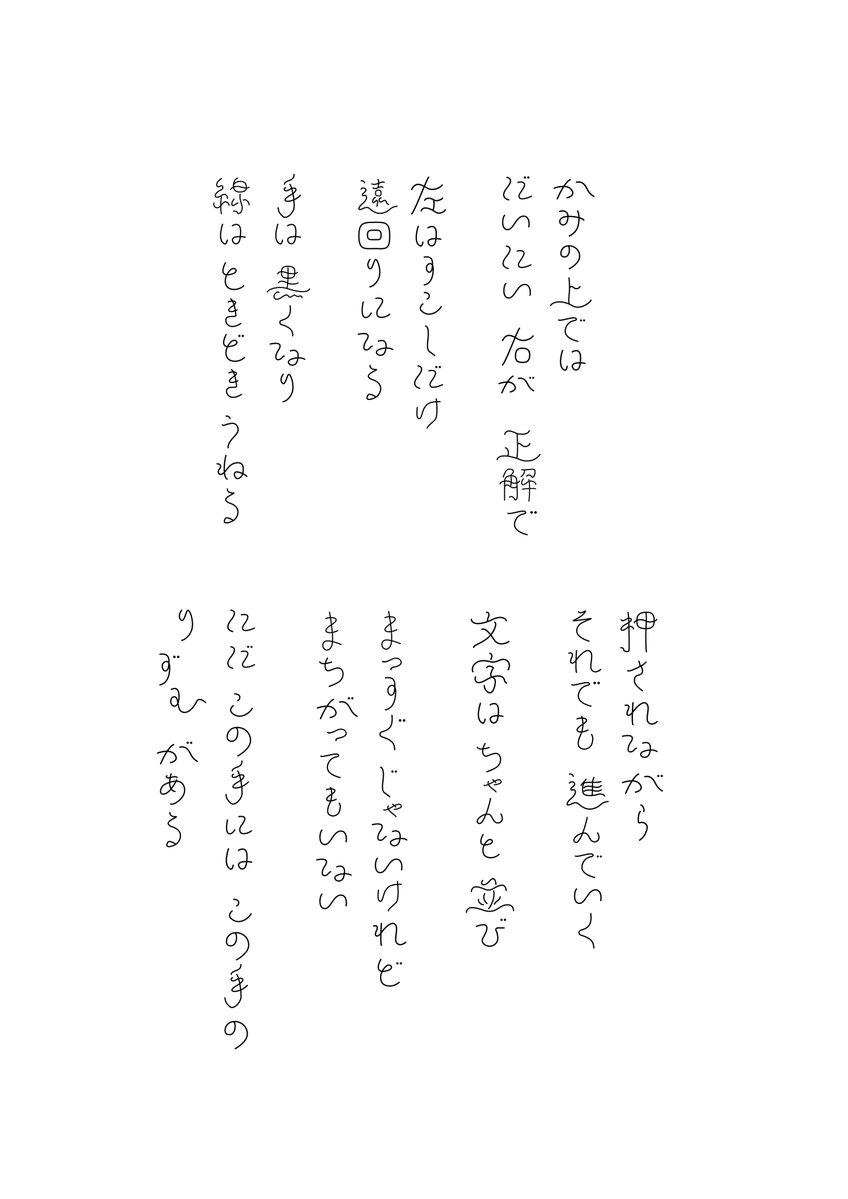 かみの上では
だいたい 右が 正解で
左はすこしだけ
遠回りになる
手は 黒くなり
線は ときどき うねる
押されながら
それでも 進んでいく
文字は ちゃんと 並び
まっすぐ じゃないけれど
まちがってもいない
ただ この手には この手の
りずむ がある